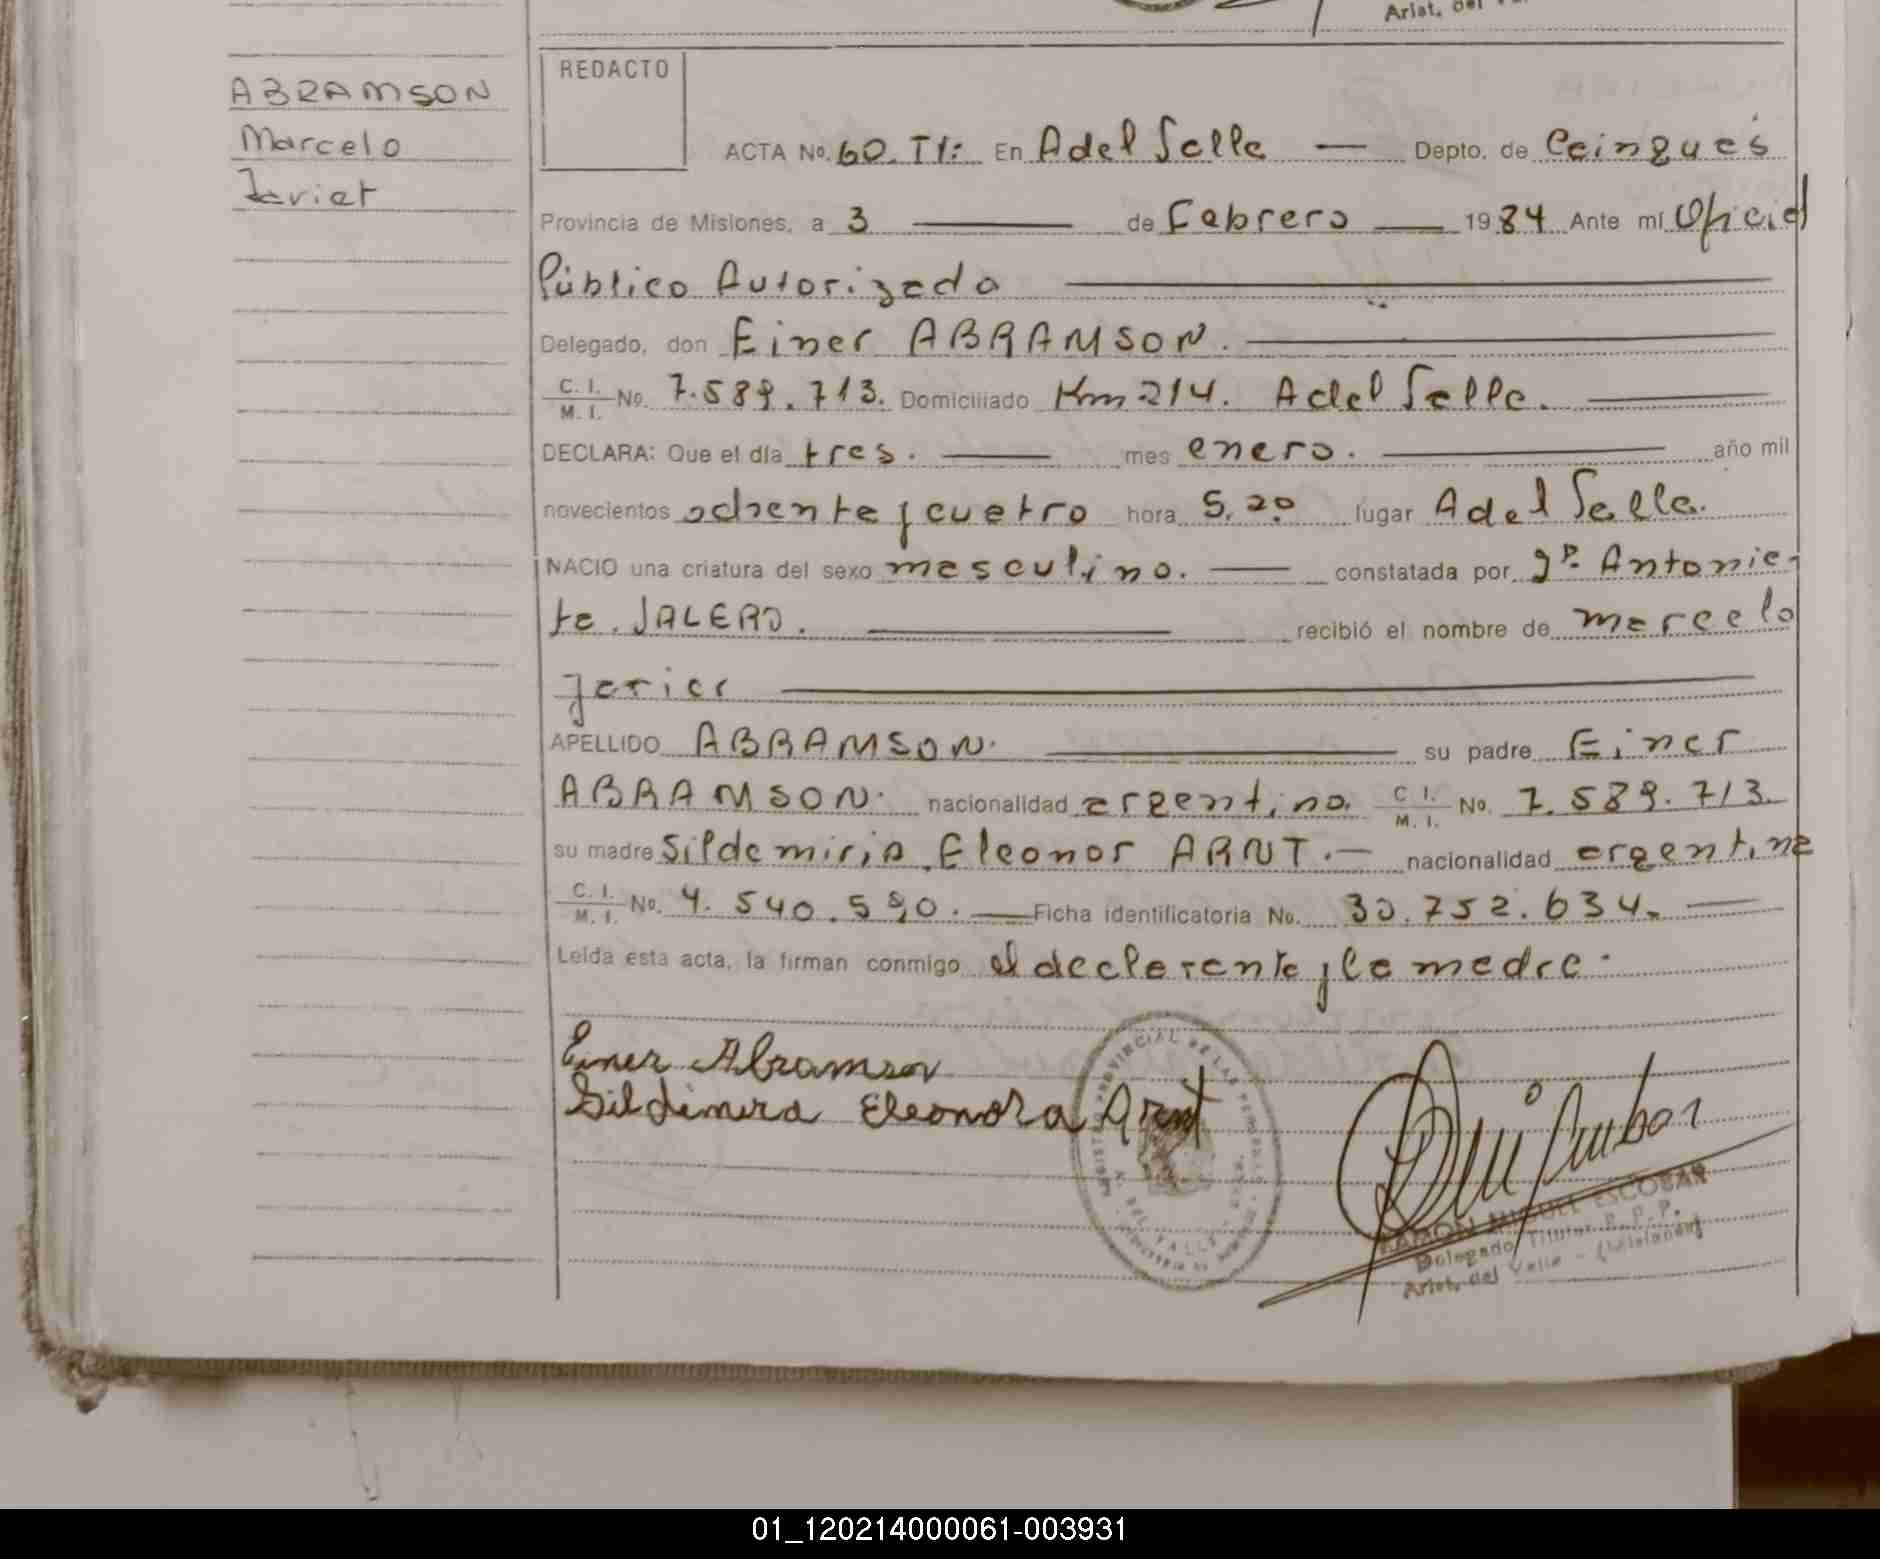 Arist. del
REDACTO
ABRAMSON
Marcelo
Javier
ACTA No. 60. T1: En A del Valle — Depto. de Caingues
Provincia de Misiones, a 3 de Febrero 1984 Ante mi Oficial
Público Autorizado
Delegado, don Einer ABRAMSON.
C. I. / M. I. No. 7.589.713. Domiciliado Km 214. A del Valle.
DECLARA: Que el día tres. mes enero. año mil
novecientos ochenta y cuatro hora 5,20 lugar A del Valle.
NACIO una criatura del sexo masculino. constatada por Antonie-
ta. recibió el nombre de Marcelo
Javier
APELLIDO ABRAMSON. su padre Einer
ABRAMSON. nacionalidad argentino. C I. / M. I. No. 7.589.713.
su madre Sildamiria Eleonor ARNT.— nacionalidad argentina
C. I. / M. I. No. 4.540.590. Ficha identificatoria No. 30.752.634.
Leída esta acta, la firman conmigo el declarante y la madre.
Einer Abramson
Sildimira Eleonora Arnt
REGISTRO PROVINCIAL DE LAS PERSONAS
A. DEL VALLE
RAMON MIGUEL ESCOBAR
Delegado Titular R. P. P.
Arist. del Valle - (Misiones)
01_120214000061-003931